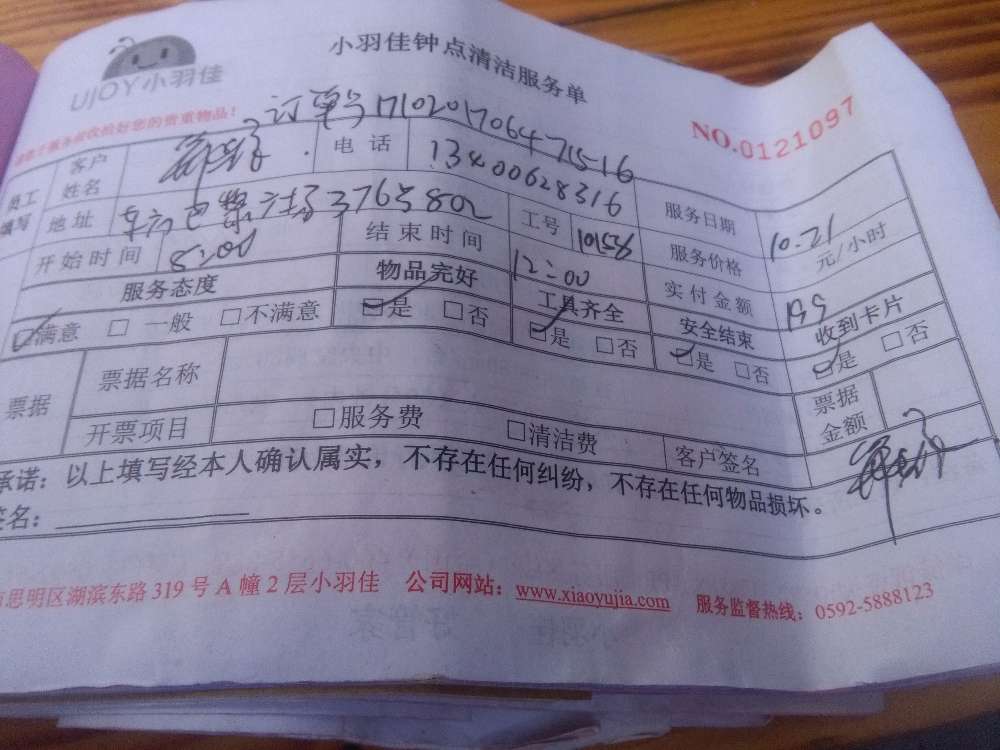 UJOY小羽佳
小羽佳钟点清洁服务单
NO.0121097
订单号17102017064771516
员工填写
客户姓名
电话 13400628316
服务日期 10.21
地址 376号802
工号 10158
服务价格 元/小时
开始时间 8:00
结束时间 12:00
实付金额
服务态度 物品完好 工具齐全 安全结束 收到卡片
☑满意 □一般 □不满意 ☑是 □否 ☑是 □否 ☑是 □否 ☑是 □否
票据 票据名称 票据金额
开票项目 □服务费 □清洁费 客户签名
承诺：以上填写经本人确认属实，不存在任何纠纷，不存在任何物品损坏。
签名：
思明区湖滨东路319号A幢2层小羽佳 公司网站：www.xiaoyujia.com 服务监督热线：0592-5888123